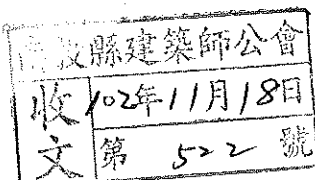 縣建築師公會
收文
102年11月18日
第 522 號